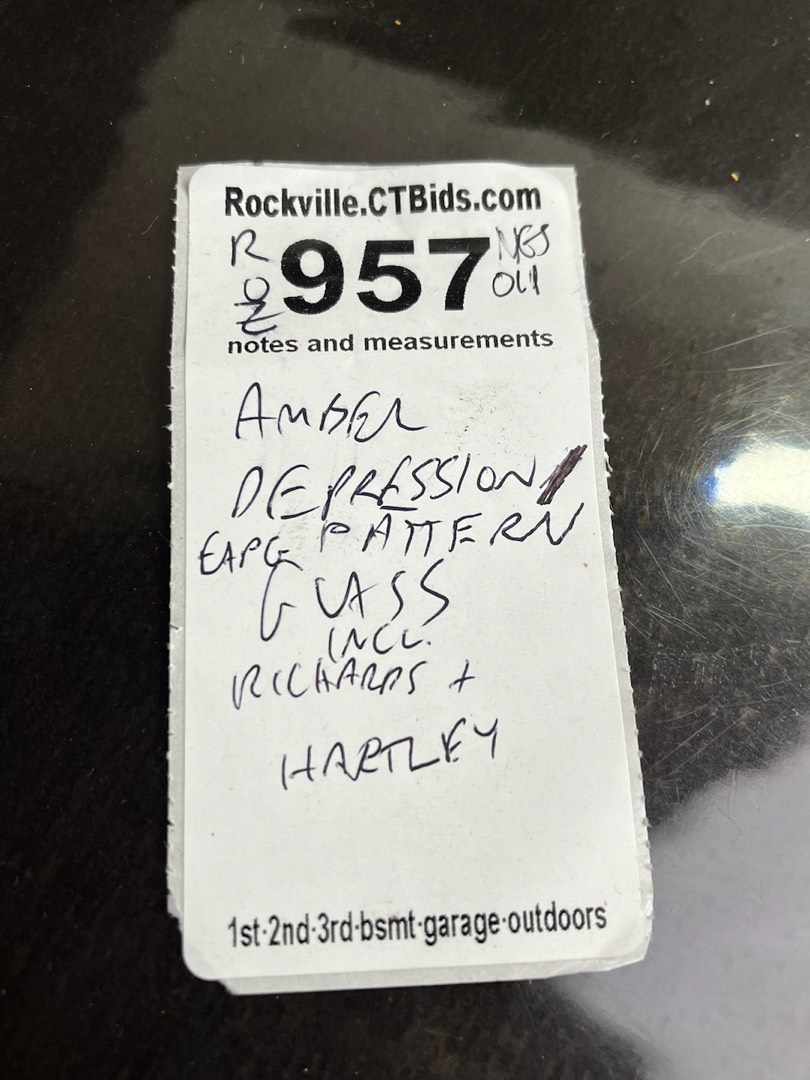 Rockville.CTBids.com
R 957
notes and measurements
AMBER
DEPRESSION
EAPG PATTERN
GLASS
INCL.
RICHARDS +
HARTLEY
1st·2nd·3rd·bsmt·garage·outdoors